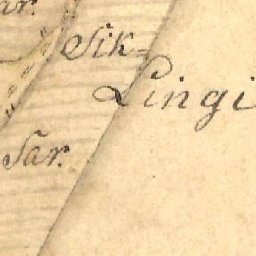 ar.
Sik=
Lingi
Sar.